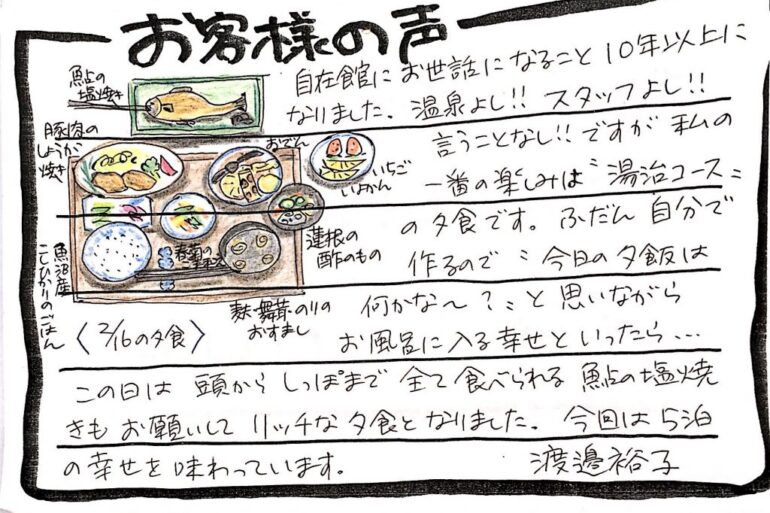 お客様の声
鮎の
塩焼き
豚肉の
しょうが
焼き
おでん
いちご
いよかん
蓮根の
酢のもの
春菊の
ごま和え
魚沼産
こしひかりのごはん
麩・舞茸・のりの
おすまし
〈2/16の夕食〉
自在館に お世話に なること 10年以上に
なりました。温泉よし!! スタッフよし!!
言うことなし!! ですが 私の
一番の楽しみは〝湯治コース〟
の夕食です。ふだん 自分で
作るので〝今日の夕飯は
何かな〜?〟と 思いながら
お風呂に入る幸せといったら・・・
この日は 頭から しっぽまで 全て食べられる 鮎の塩焼
きも お願いして リッチな夕食と なりました。今回は 5泊
の幸せを味わっています。
渡邉裕子